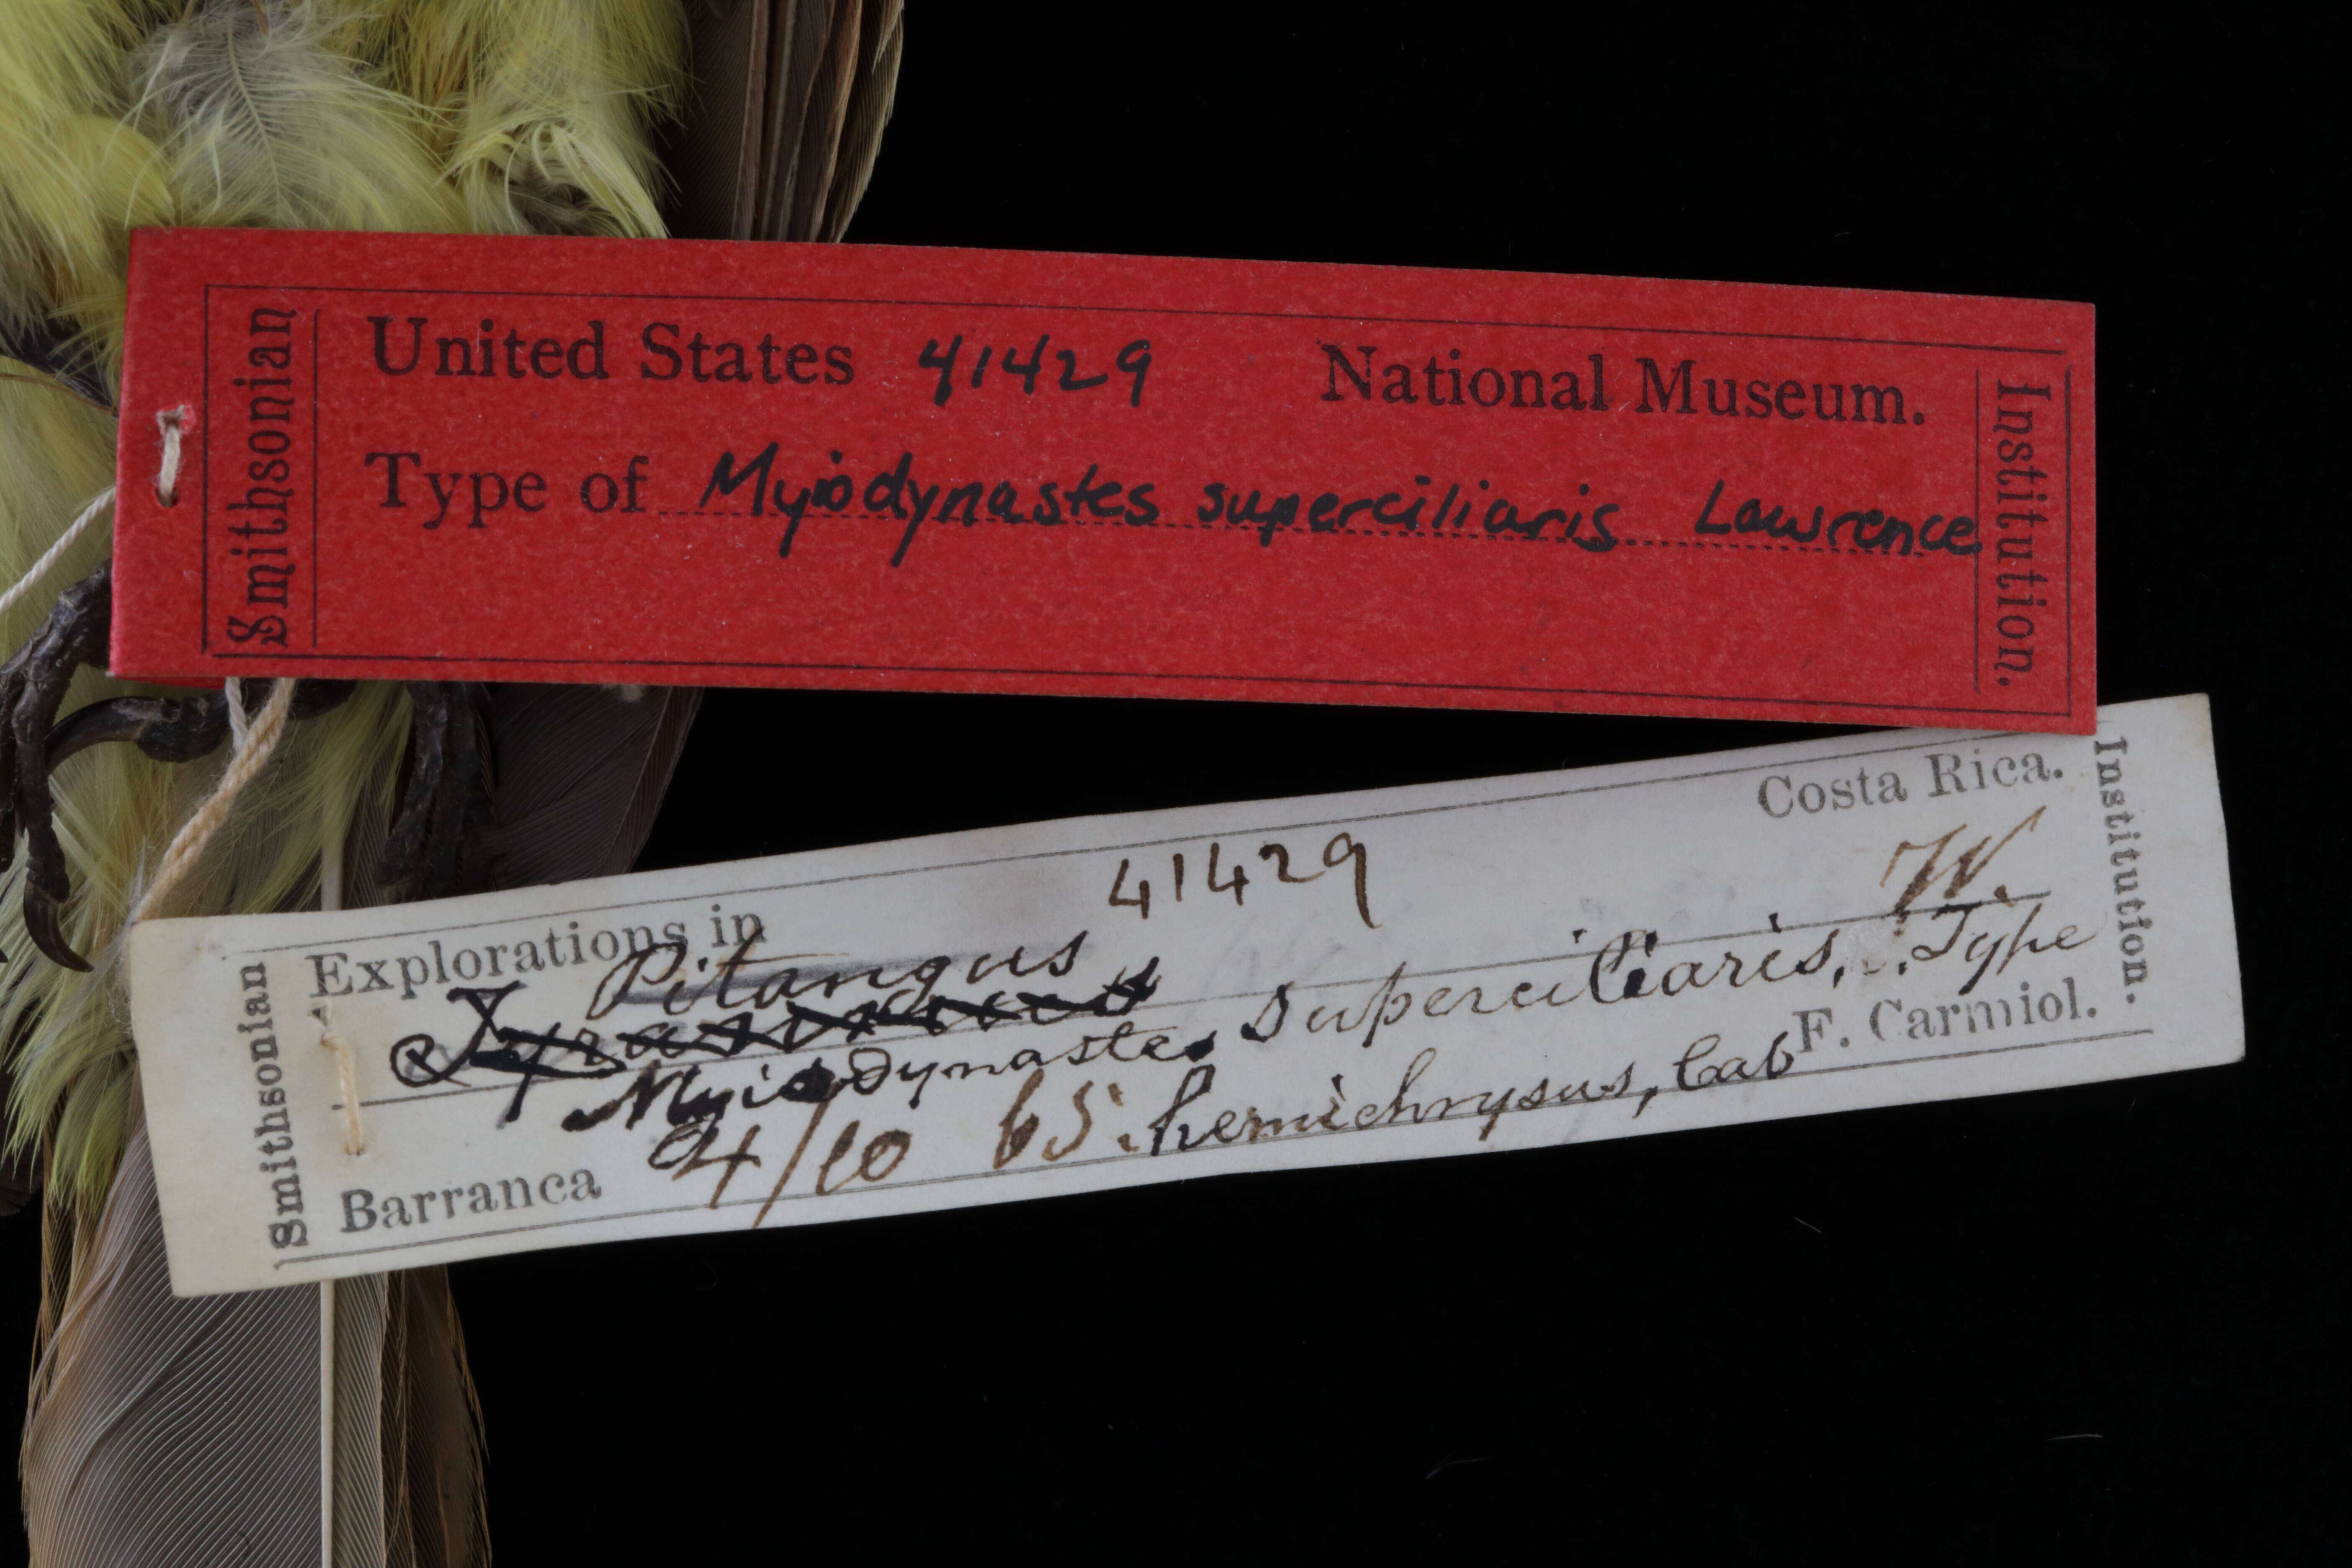 Smithsonian
United States 41429 National Museum.
Type of Myiodynastes superciliaris Lawrence
Institution.
Smithsonian
Explorations in 41429 Costa Rica.
Pitangus W.
Tyrannus superciliaris, Type
Myiodynastes hemichrysus, Cab
Barranca 4/10 65. F. Carmiol.
Institution.